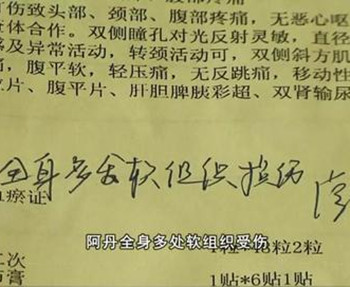 打伤致头部、颈部、腹部疼痛,无恶心呕
查体合作。双侧瞳孔对光反射灵敏,直径
及异常活动,转颈活动可,双侧斜方肌
痛,腹平软,轻压痛,无反跳痛,移动性
片、腹平片、肝胆脾胰彩超、双肾输尿
全身多发软组织损伤
瘀证
阿丹全身多处软组织受伤
1粒*48粒2粒
二次
膏
1贴*6贴1贴